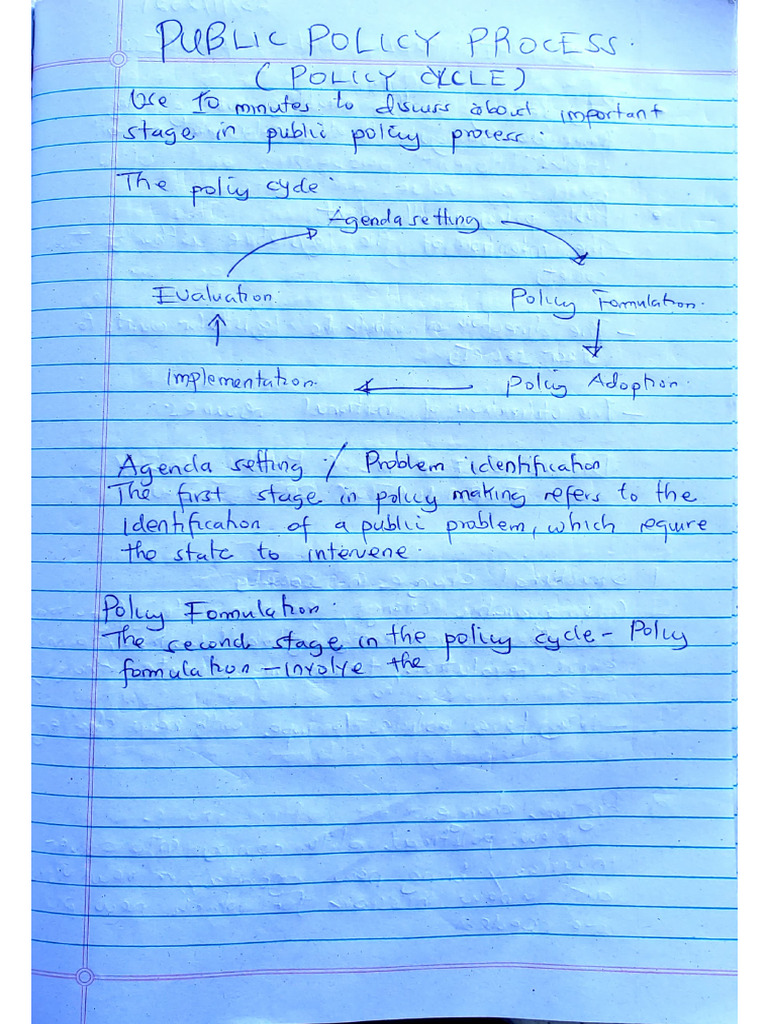 PUBLIC POLICY PROCESS.
(POLICY CYCLE)
Use 10 minutes to discuss about important
stage in public policy process.
The policy cycle.
Agenda setting
Evaluation. Policy Fomulation.
Implementation. Policy Adoption.
Agenda setting / Problem identification
The first stage in policy making refers to the
identification of a public problem, which require
the state to intervene.
Policy Fomulation.
The second stage in the policy cycle - Policy
formulation - involve the